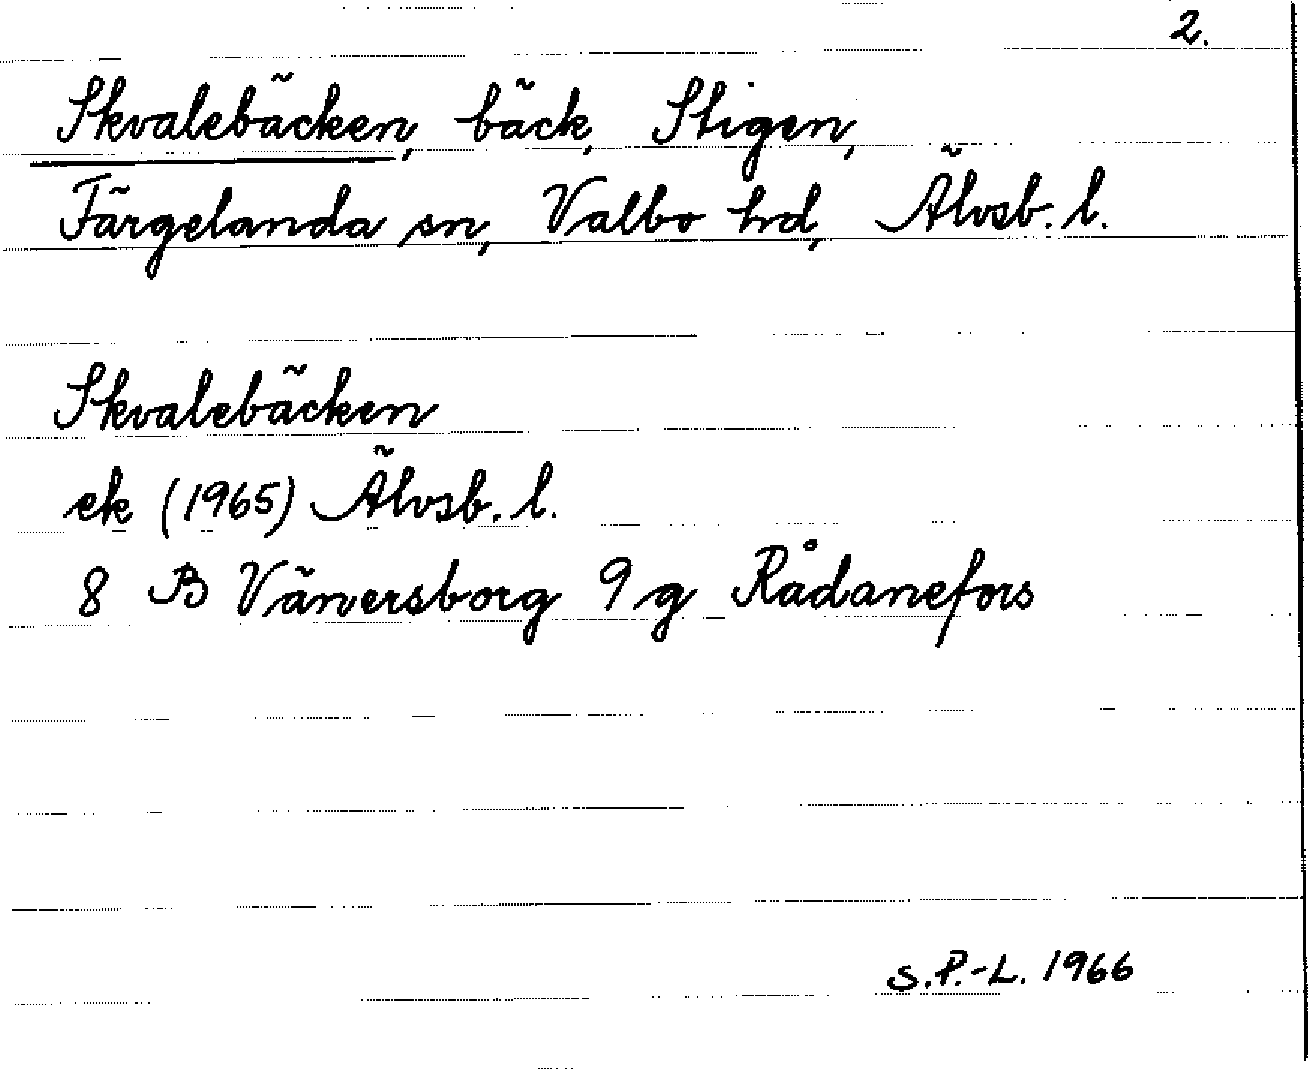 2.
Skvalebäcken, bäck, Stigen,
Färgelanda sn, Valbo hd, Älvsb. l.
Skvalebäcken
ek (1965) Älvsb. l.
8 B Vänersborg 9 g Rådanefors
S.P.-L. 1966